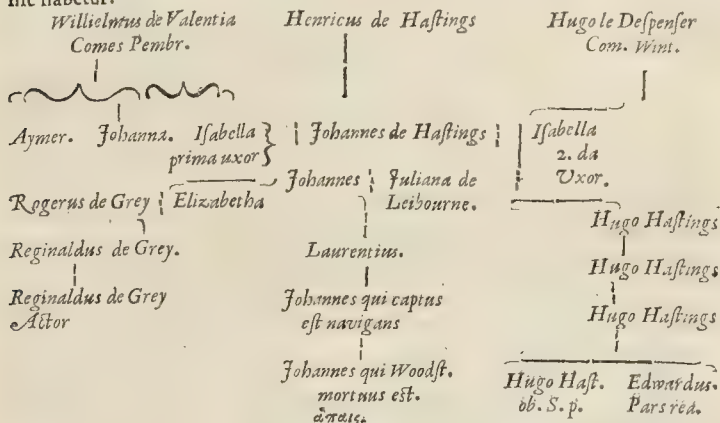 hic habetur.
Willielmus de Valentia
Comes Pembr.
Henricus de Haſtings
Hugo le Deſpenſer
Com. Wint.
Aymer. Johanna. Iſabella
prima uxor
Johannes de Haſtings
Iſabella
2. da
Uxor.
Rogerus de Grey
Elizabetha
Johannes
Juliana de
Leibourne.
Hugo Haſtings
Reginaldus de Grey.
Laurentius.
Hugo Haſtings
Reginaldus de Grey
Actor
Johannes qui captus
eſt navigans
Hugo Haſtings
Johannes qui Woodſt.
mortuus est.
ἄπαις.
Hugo Haſt.
ob. S. p.
Edwardus.
Pars rea.